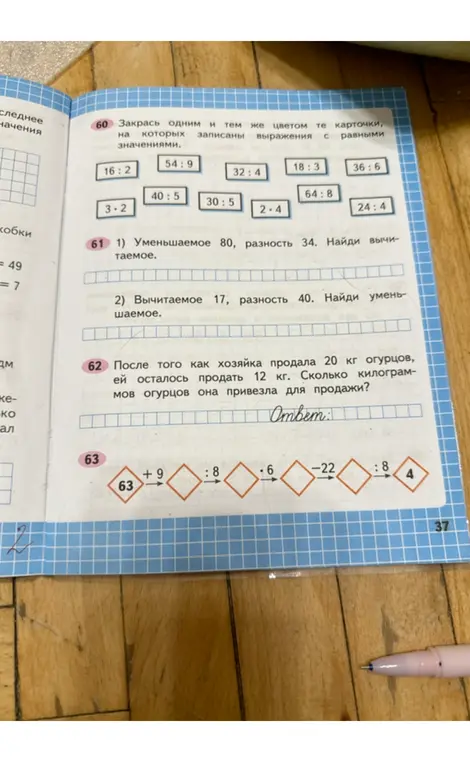 следнее
начения
кобки
= 49
= 7
дм
же-
ько
ал
2
60 Закрась одним и тем же цветом те карточки,
на которых записаны выражения с равными
значениями.
16 : 2 54 : 9 32 : 4 18 : 3 36 : 6
3 · 2 40 : 5 30 : 5 2 · 4 64 : 8 24 : 4
61 1) Уменьшаемое 80, разность 34. Найди вычи-
таемое.
2) Вычитаемое 17, разность 40. Найди умень-
шаемое.
62 После того как хозяйка продала 20 кг огурцов,
ей осталось продать 12 кг. Сколько килограм-
мов огурцов она привезла для продажи?
Ответ:
63
63 + 9 : 8 · 6 –22 : 8 4
37